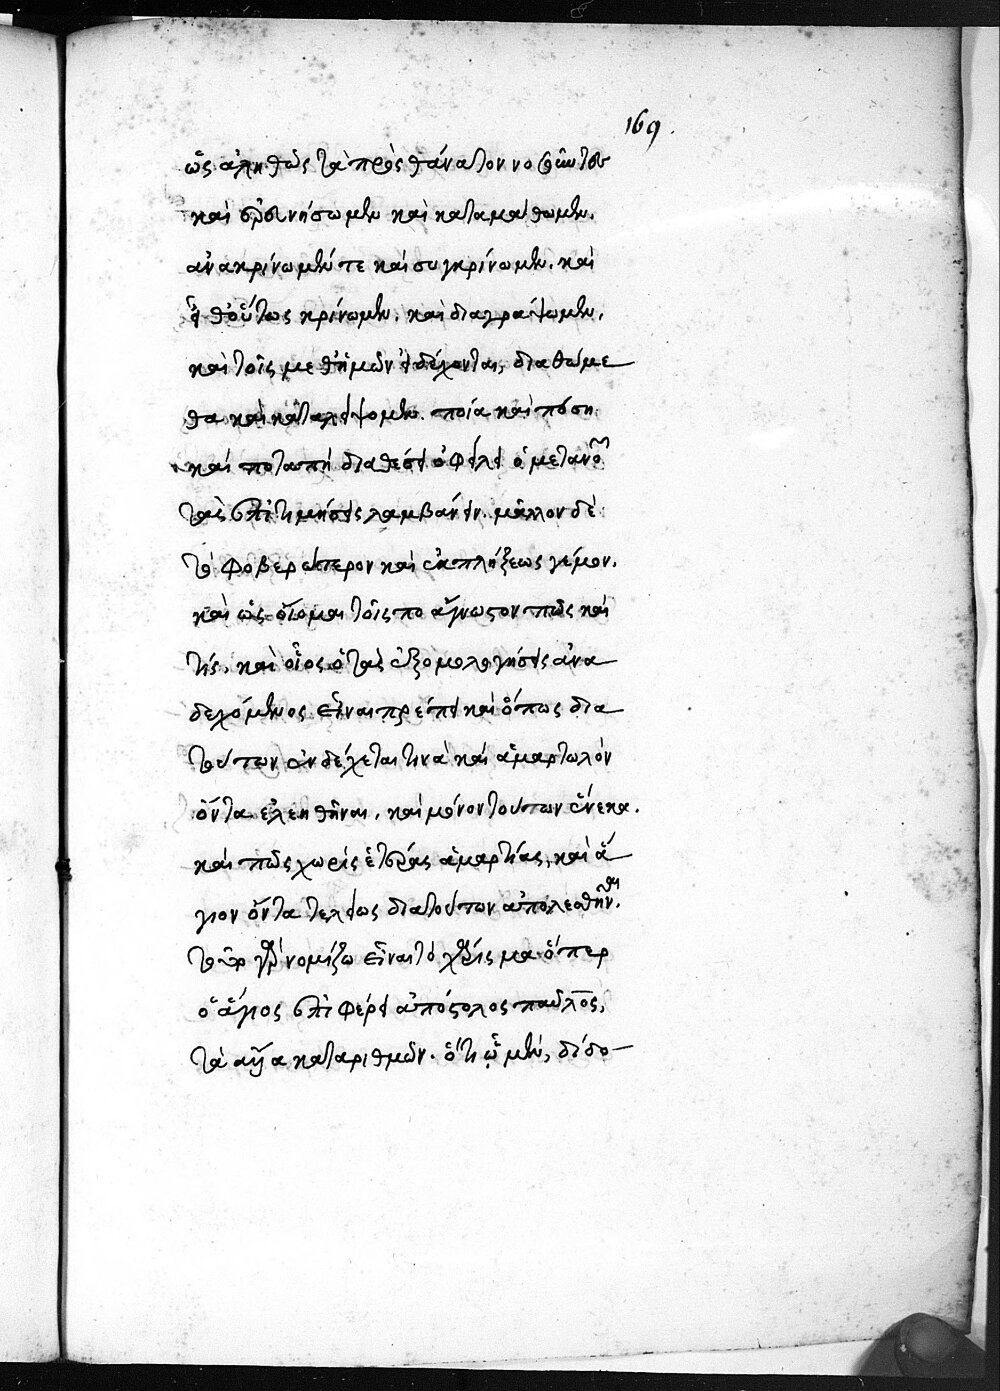 169.
ὡς ἀληθῶς τὰ πρὸς θάνατον νοσοῦντος
καὶ ἐρευνήσωμεν καὶ καταμάθωμεν.
ἀνακρίνωμέν τε καὶ συγκρίνωμεν. καὶ
εἶθ' οὕτως κρίνωμεν. καὶ διαγράψωμεν.
καὶ τοῖς μεθ' ἡμῶν ἐκδέχονται, διαθώμε
θα καὶ καταλείψομεν. ποία καὶ πόση
καὶ ποταπῆ διαθέσει ὀφείλει ὁ μετανοῶν
τὰς ἐπιτιμήσεις λαμβάνειν. μᾶλλον δὲ
τὸ φοβερώτερον καὶ ἐκπλήξεως γέμον.
καὶ ὡς οἴομαι τοῖς πο ἄγνωστον πῶς καὶ
τίς. καὶ οἷος ὁ τὰς ἐξομολογήσεις ἀνα
δεχόμενος εἶναι πρέπει καὶ ὅπως δια
τούτων ἐνδέχεται τινὰ καὶ ἁμαρτωλὸν
ὄντα ἐλεηθῆναι. καὶ μόνον τούτων ἕνεκα.
καὶ πῶς χωρὶς ἑτέρας ἁμαρτίας, καὶ ἅ
γιον ὄντα τελείως διὰ τούτων ἀπολεσθῆναι.
τοῦ γὰρ νομίζω εἶναι τὸ χάρισμα ὅπερ
ὁ ἅγιος ἐπιφέρει ἀπόστολος παῦλος,
τὰ ἄλλα καταριθμῶν. ὅτι ᾧ μὲν, δίδο